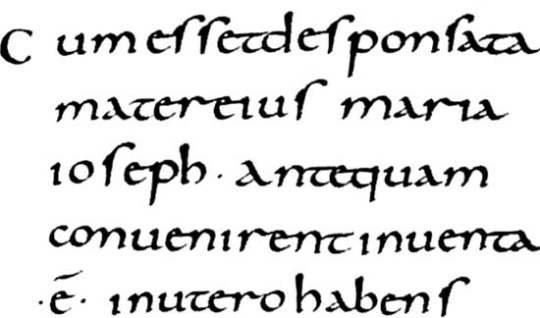 Cum essetdesponsata
matereius maria
ioseph · antequam
conuenirent inuenta
·ē· inuterohabens